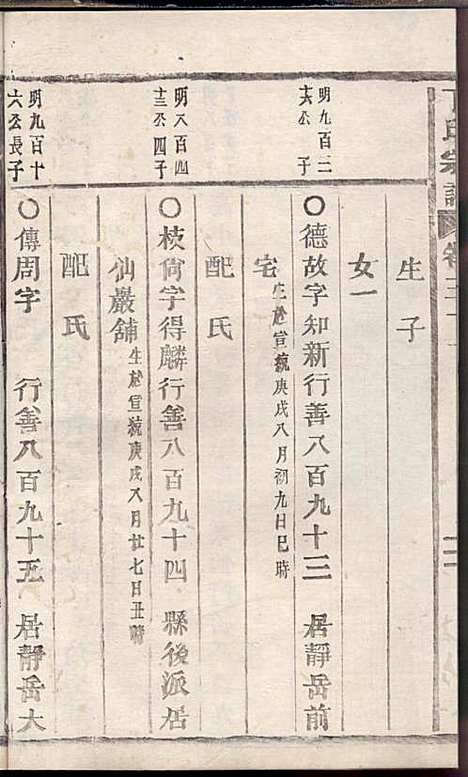 氏宗譜 卷
生子
女一
明九百二十六公 子
○德故字知新行善八百九十三 居靜岳前
宅 生於宣統庚戌八月初九日巳時
配氏
明八百四十三公四子
○枝尙字得麟行善八百九十四 縣後派居
仙巖舖 生於宣統庚戌八月廿七日丑時
配氏
明九百十六公長子
○傳周字 行善八百九十五 居靜岳大